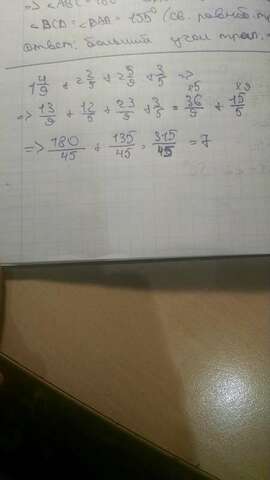 => ∠ABC = 180
∠BCD = ∠BAD = 135° (св. равноб.
Ответ: больший угол трап. =
1 4/9 + 2 2/5 + 2 5/9 + 3/5 =>
=> 13/9 + 12/5 + 23/9 + 3/5 = 36/9 ×5 + 15/5 ×9
=> 180/45 + 135/45 = 315/45 = 7